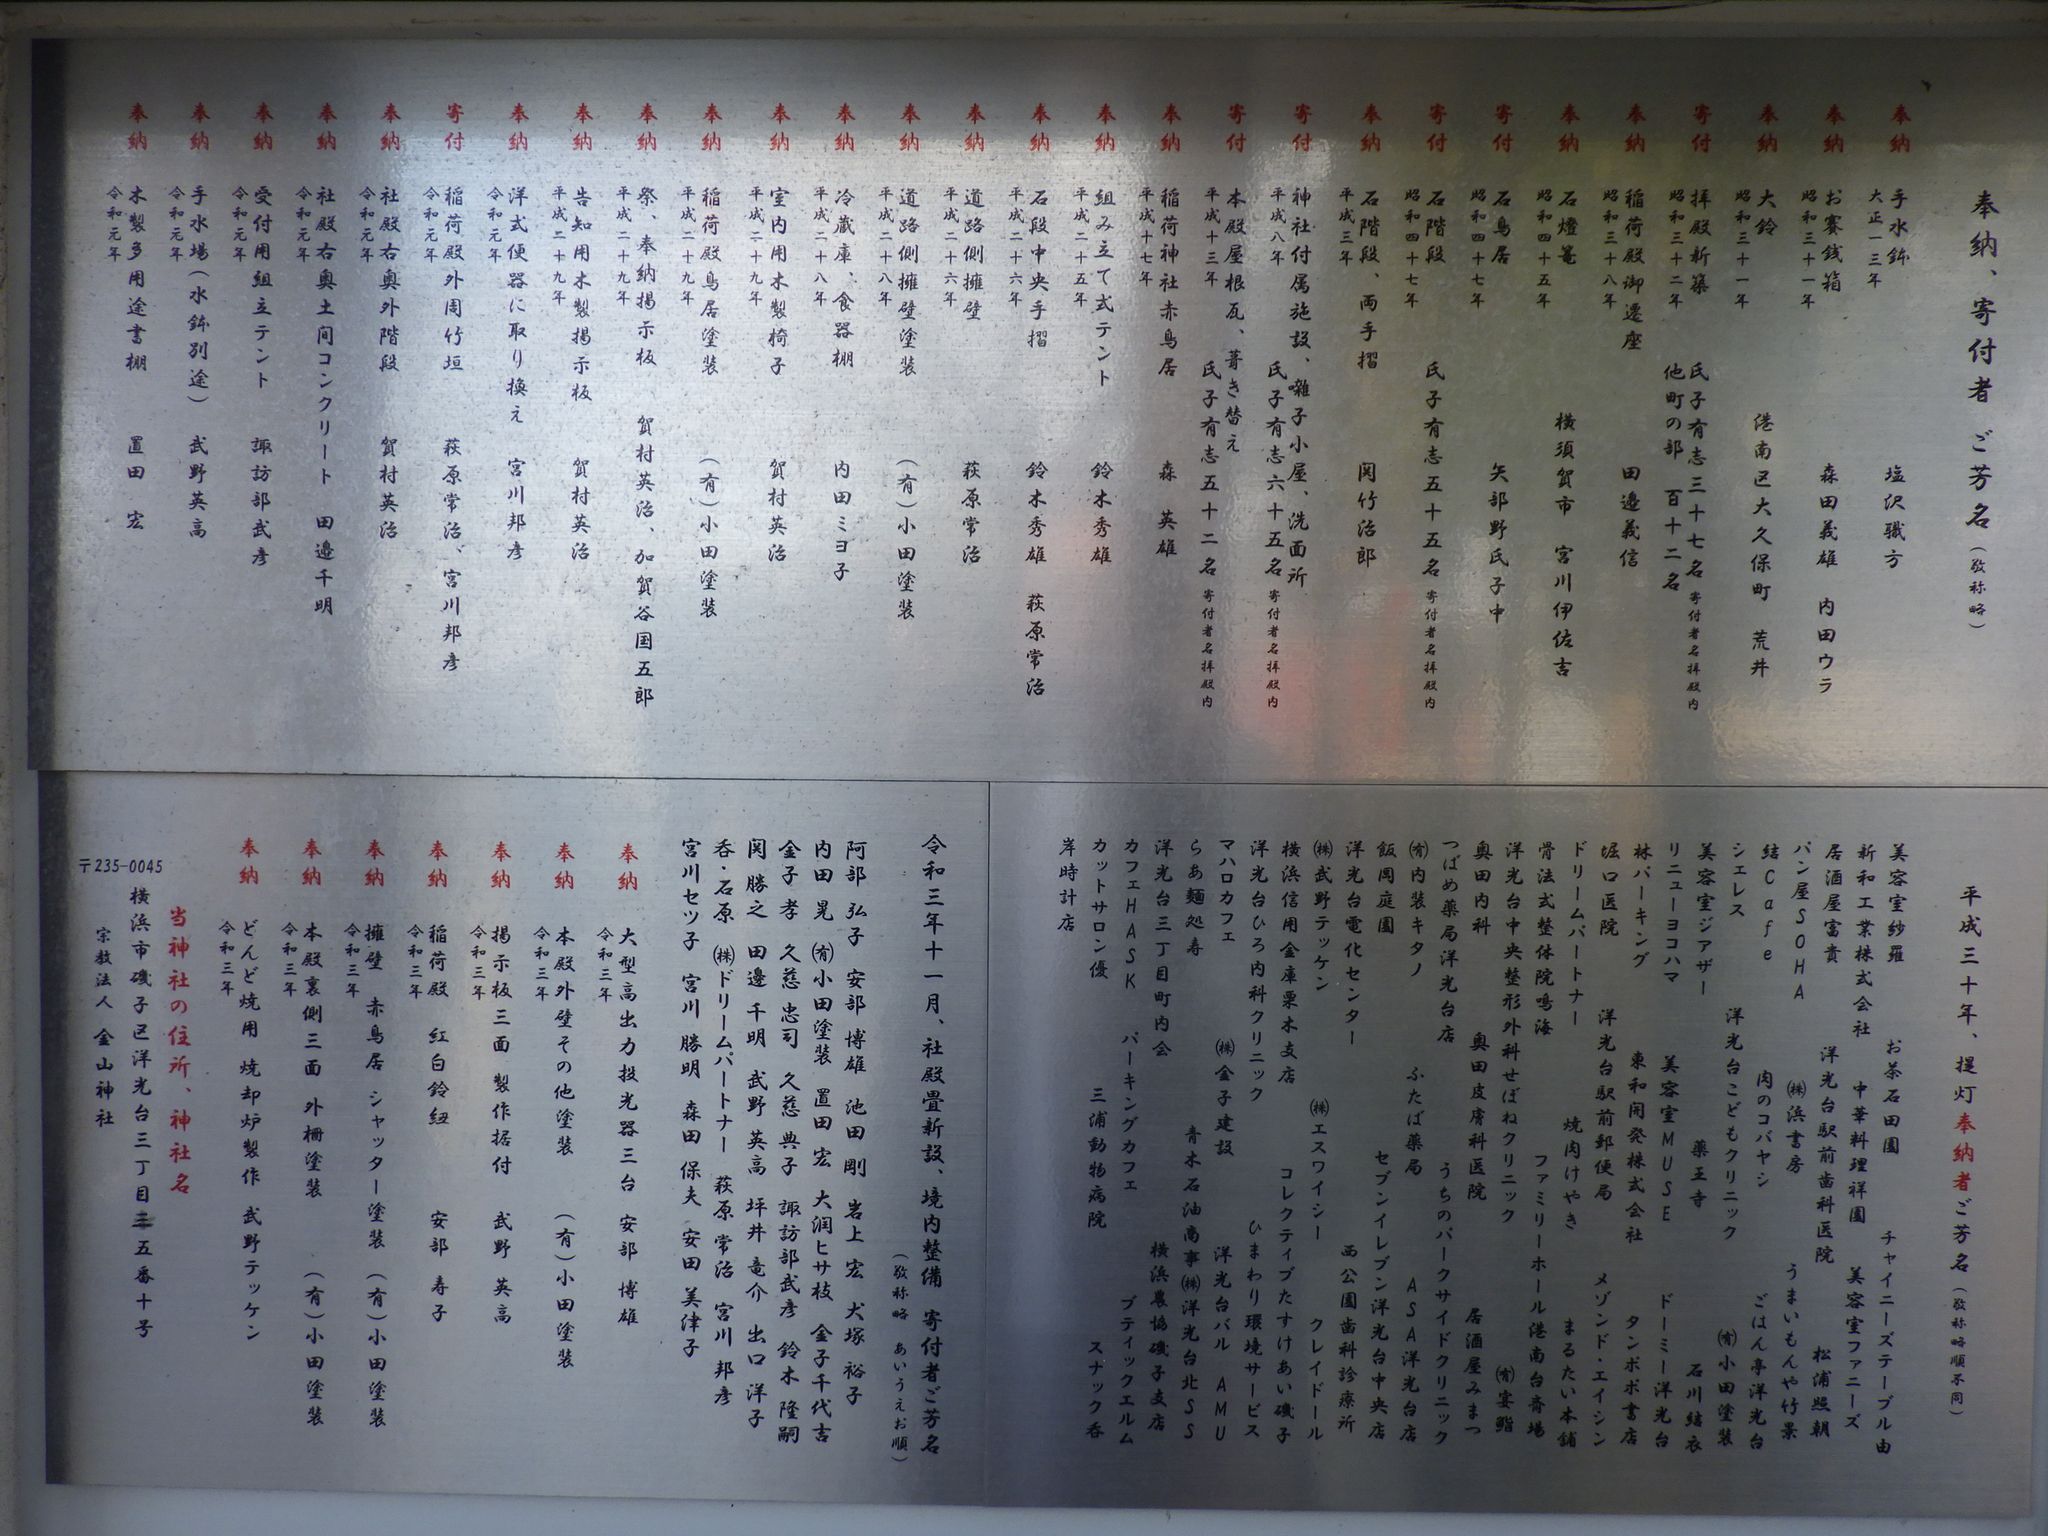 奉納、寄付者ご芳名（敬称略）
奉納 手水鉢 塩沢職方
大正一三年
奉納 お賽銭箱 森田義雄 内田ウラ
昭和三十一年
奉納 大鈴 港南区大久保町 荒井
昭和三十一年
寄付 拝殿新築 氏子有志三十七名 寄付者名拝殿内
昭和三十二年 他町の部 百十二名
奉納 稲荷殿御遷座 田邉義信
昭和三十八年
奉納 石燈篭 横須賀市 宮川伊佐吉
昭和四十五年
寄付 石鳥居 矢部野氏子中
昭和四十七年
寄付 石階段 氏子有志五十五名 寄付者名拝殿内
昭和四十七年
奉納 石階段、両手摺 関竹治郎
平成三年
寄付 神社付属施設、囃子小屋、洗面所
平成八年 氏子有志六十五名 寄付者名拝殿内
寄付 本殿屋根瓦、葺き替え
平成十三年 氏子有志五十二名 寄付者名拝殿内
奉納 稲荷神社赤鳥居 森 英雄
平成十七年
奉納 組み立て式テント 鈴木秀雄
平成二十五年
奉納 石段中央手摺 鈴木秀雄 萩原常治
平成二十六年
奉納 道路側擁壁 萩原常治
平成二十六年
奉納 道路側擁壁塗装 （有）小田塗装
平成二十八年
奉納 冷蔵庫、食器棚 内田ミヨ子
平成二十八年
奉納 室内用木製椅子 賀村英治
平成二十九年
奉納 稲荷殿鳥居塗装 （有）小田塗装
平成二十九年
奉納 祭、奉納掲示板 賀村英治、加賀谷国五郎
平成二十九年
奉納 告知用木製掲示板 賀村英治
平成二十九年
奉納 洋式便器に取り換え 宮川邦彦
令和元年
寄付 稲荷殿外周竹垣 萩原常治、宮川邦彦
令和元年
奉納 社殿右奥外階段 賀村英治
令和元年
奉納 社殿右奥土間コンクリート 田邉千明
令和元年
奉納 受付用組立テント 諏訪部武彦
令和元年
奉納 手水場（水鉢別途） 武野英高
令和元年
奉納 木製多用途書棚 置田 宏
令和元年
平成三十年、提灯奉納者ご芳名（敬称略順不同）
美容室紗羅 お茶石田園 チャイニーズテーブル由
新和工業株式会社 中華料理祥園 美容室ファニーズ
居酒屋富貴 洋光台駅前歯科医院 松浦照朝
パン屋SOHA ㈱浜書房 うまいもんや竹景
結Cafe 肉のコバヤシ ごはん亭洋光台
シェレス 洋光台こどもクリニック ㈲小田塗装
美容室ジアザー 薬王寺 石川結衣
リニューヨコハマ 美容室MUSE ドーミー洋光台
林パーキング 東和開発株式会社 タンポポ書店
堀口医院 洋光台駅前郵便局 メゾンド・エイシン
ドリームパートナー 焼肉けやき まるたい本舗
骨法式整体院鳴海 ファミリーホール港南台斎場
洋光台中央整形外科せぼねクリニック ㈲安鮨
奥田内科 奥田皮膚科医院 居酒屋みまつ
つばめ薬局洋光台店 うちのパークサイドクリニック
㈲内装キタノ ふたば薬局 ASA洋光台店
飯岡庭園 セブンイレブン洋光台中央店
洋光台電化センター 西公園歯科診療所
㈱武野テッケン ㈱エスワイシー クレイドール
横浜信用金庫栗木支店 コレクティブたすけあい磯子
洋光台ひろ内科クリニック ひまわり環境サービス
マハロカフェ ㈱金子建設 洋光台バル AMU
らあ麺処寿 青木石油商事㈱洋光台北SS
洋光台三丁目町内会 横浜農協磯子支店
カフェHASK パーキングカフェ ブティックエルム
カットサロン優 三浦動物病院 スナック呑
岸時計店
令和三年十一月、社殿畳新設、境内整備 寄付者ご芳名
（敬称略 あいうえお順）
阿部 弘子 安部 博雄 池田 剛 岩上 宏 犬塚 裕子
内田 晃 ㈲小田塗装 置田 宏 大澗ヒサ枝 金子千代吉
金子 孝 久慈 忠司 久慈 典子 諏訪部武彦 鈴木 隆嗣
関 勝之 田邊 千明 武野 英高 坪井 竜介 出口 洋子
呑・石原 ㈱ドリームパートナー 萩原 常治 宮川 邦彦
宮川セツ子 宮川 勝明 森田 保夫 安田 美津子
奉納 大型高出力投光器三台 安部 博雄
令和三年
奉納 本殿外壁その他塗装 （有）小田塗装
令和三年
奉納 掲示板三面 製作据付 武野 英高
令和三年
奉納 稲荷殿 紅白鈴紐 安部 寿子
令和三年
奉納 擁壁 赤鳥居 シャッター塗装 （有）小田塗装
令和三年
奉納 本殿裏側三面 外柵塗装 （有）小田塗装
令和三年
奉納 どんど焼用 焼却炉製作 武野テッケン
令和三年
当神社の住所、神社名
〒235-0045
横浜市磯子区洋光台三丁目三五番十号
宗教法人 金山神社